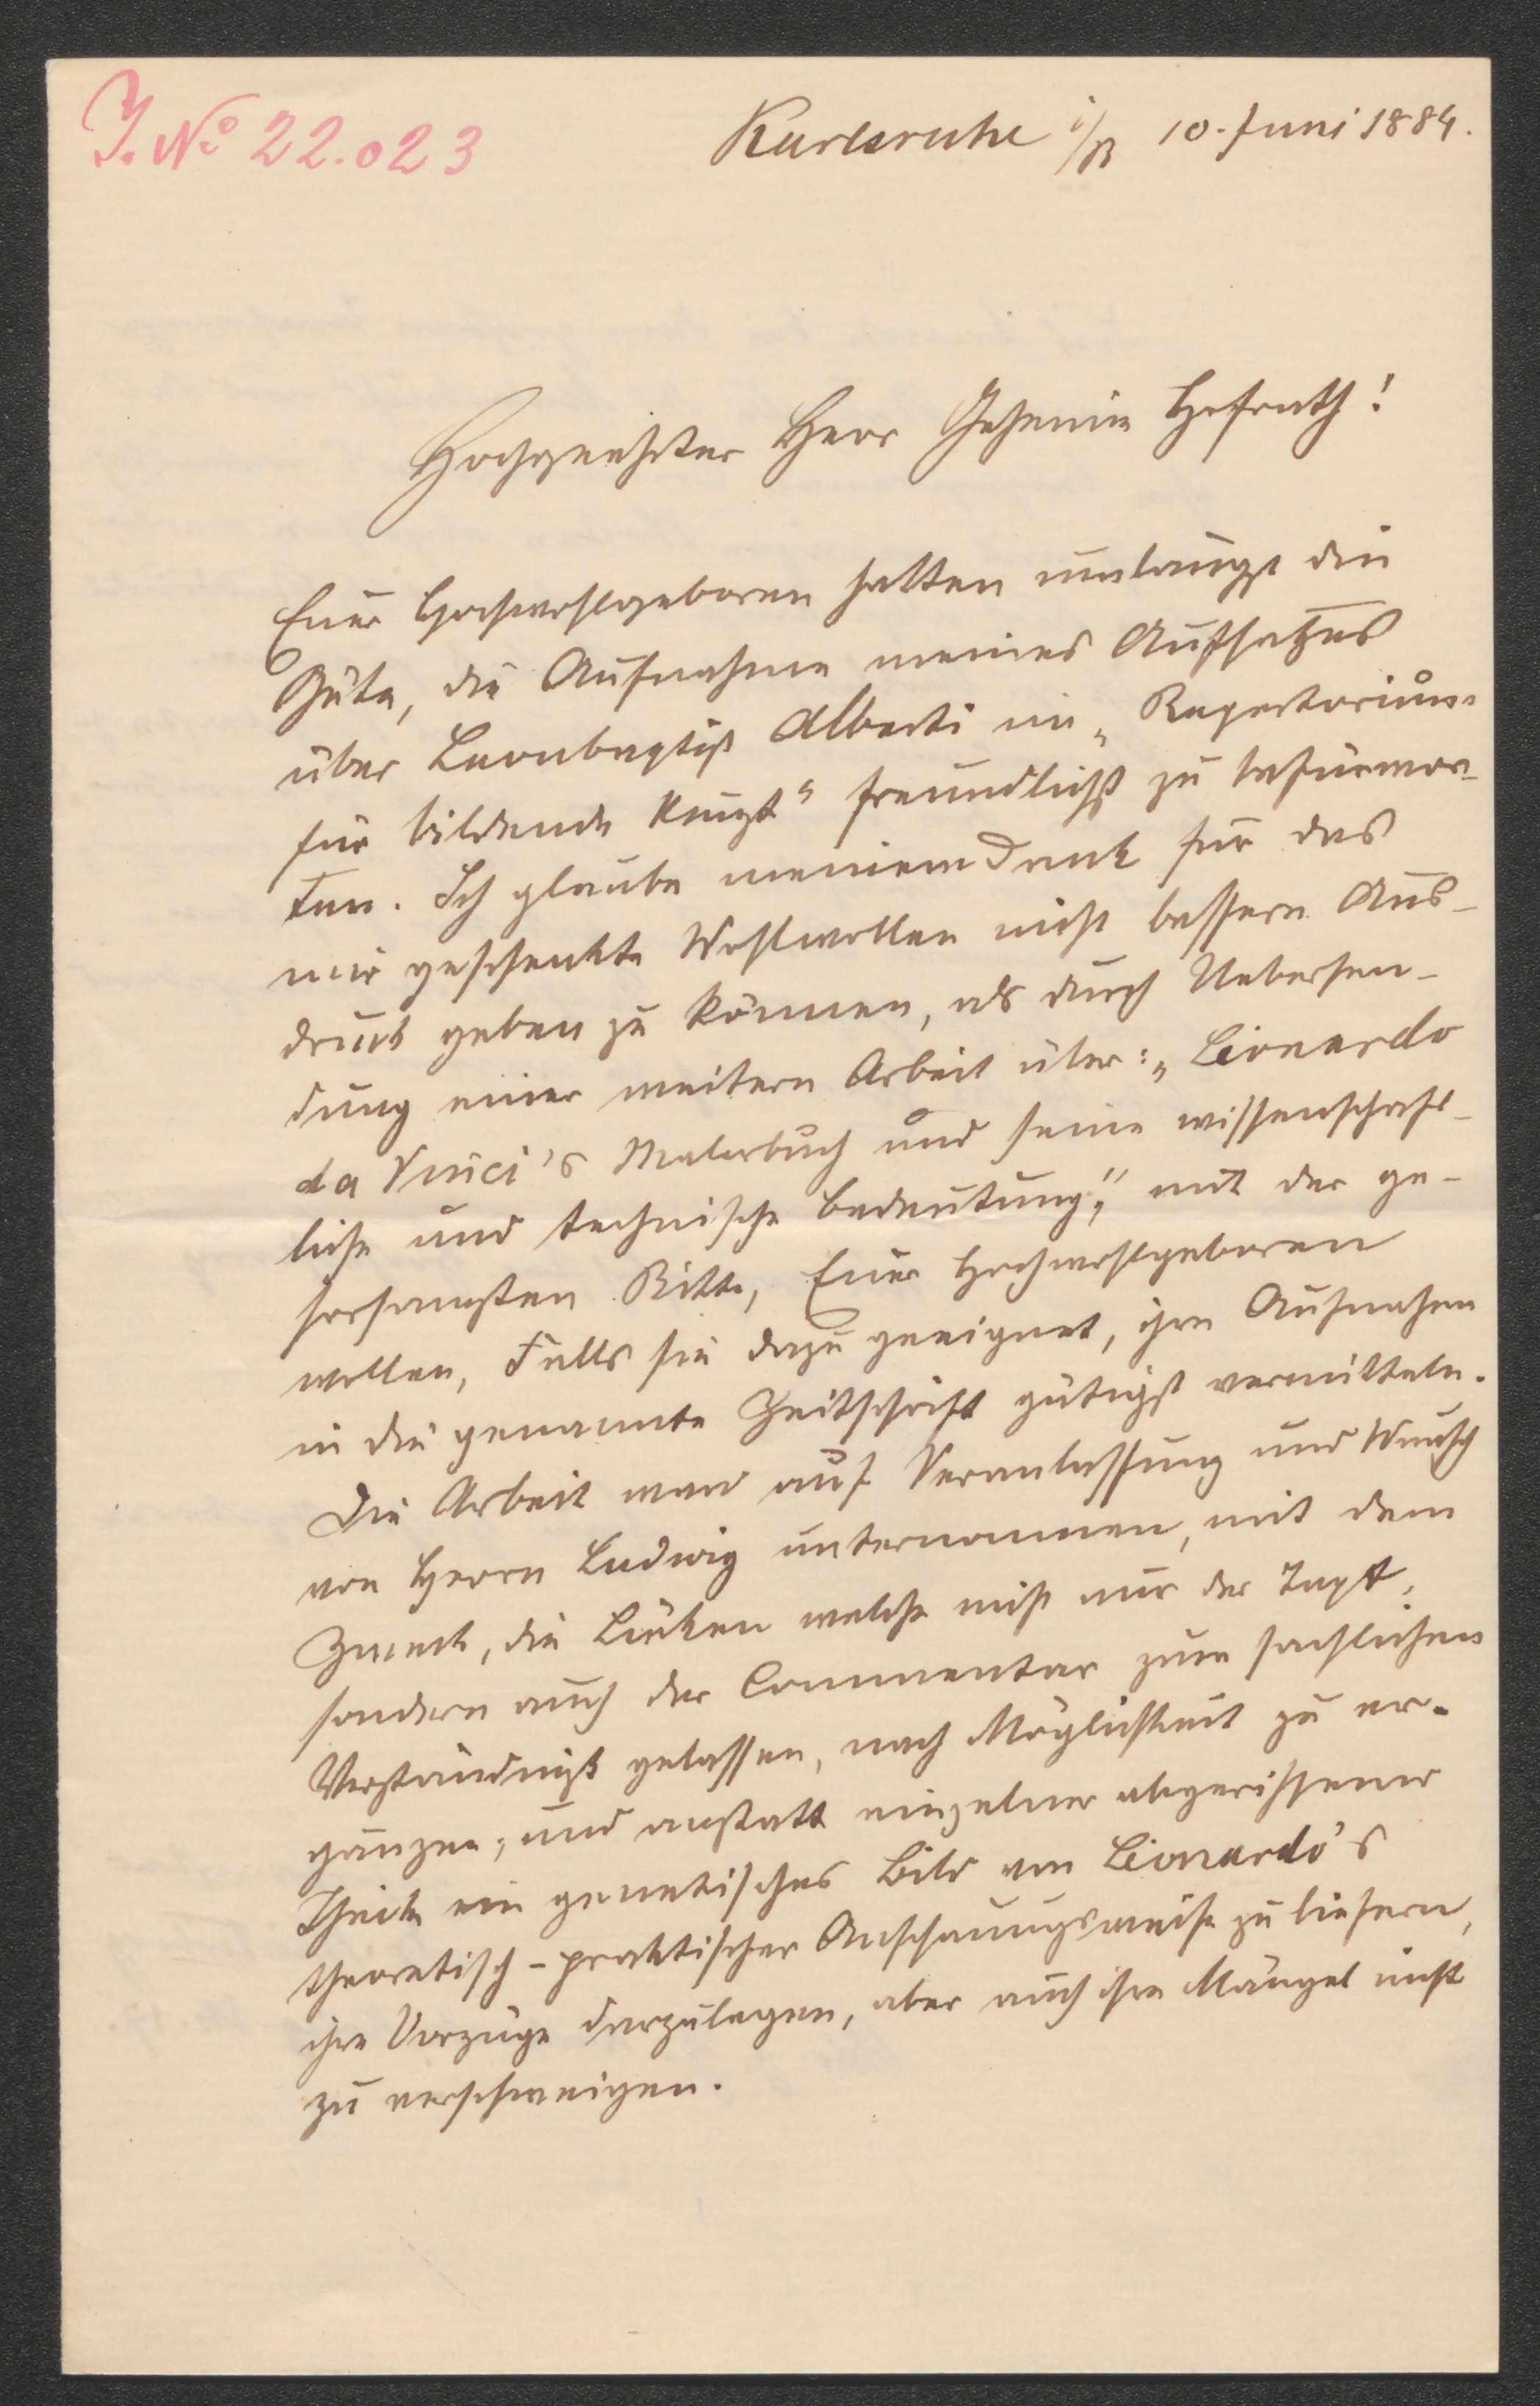 J. No 22.023
Karlsruhe i/B 10. Juni 1884.
Hochgeehrter Herr Geheim Hofrath!
Euer Hochwohlgeboren hatten unlängst die
Güte, die Aufnahme meines Aufsatzes
über Leonbaptist Alberti im „Repertorium
für bildende Kunst" freundlichst zu befürwor-
ten. Ich glaube meinem Dank für das
mir geschenkte Wohlwollen nicht bessern Aus-
druck geben zu können, als durch Uebersen-
dung einer weitern Arbeit über: „Lionardo
da Vinci's Malerbuch und seine wissenschaft-
liche und technische Bedeutung", mit der ge-
horsamsten Bitte, Euer Hochwohlgeboren
wollen, Falls sie dazu geeignet, ihre Aufnahme
in die genannte Zeitschrift gütigst vermitteln.
Die Arbeit ward auf Veranlassung und Wunsch
von Herrn Ludwig unternommen, mit dem
Zweck, die Lücken welche nicht nur der Text,
sondern auch der Commentar zum sachlichen
Verständniß gelassen, nach Möglichkeit zu er-
gänzen, und anstatt einzelner abgerissener
Theile ein genetisches Bild von Lionardo's
theoretisch-praktischer Anschauungsweise zu liefern,
ihre Vorzüge darzulegen, aber auch ihre Mängel nicht
zu verschweigen.